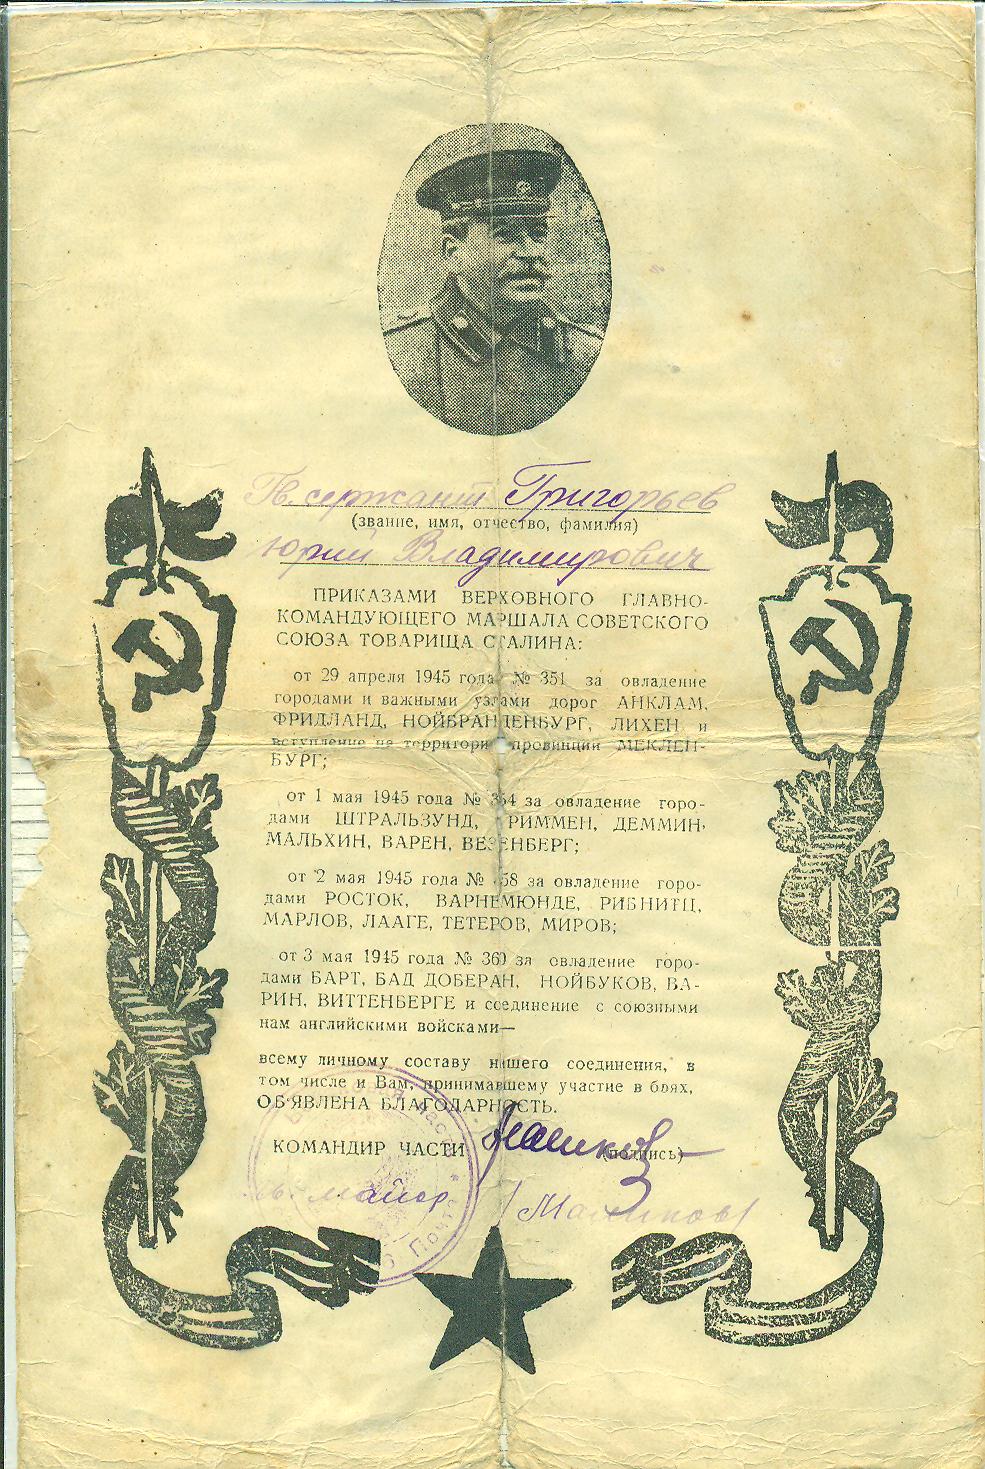 Гв. сержант Григорьев
(звание, имя, отчество, фамилия)
Юрий Владимирович
ПРИКАЗАМИ ВЕРХОВНОГО ГЛАВНО-
КОМАНДУЮЩЕГО МАРШАЛА СОВЕТСКОГО
СОЮЗА ТОВАРИЩА СТАЛИНА:
от 29 апреля 1945 года № 351 за овладение
городами и важными узлами дорог АНКЛАМ,
ФРИДЛАНД, НОЙБРАНДЕНБУРГ, ЛИХЕН и
вступление на территори провинции МЕКЛЕН-
БУРГ;
от 1 мая 1945 года № 354 за овладение горо-
дами ШТРАЛЬЗУНД, РИММЕН, ДЕММИН,
МАЛЬХИН, ВАРЕН, ВЕЗЕНБЕРГ;
от 2 мая 1945 года № 58 за овладение горо-
дами РОСТОК, ВАРНЕМЮНДЕ, РИБНИТЦ,
МАРЛОВ, ЛААГЕ, ТЕТЕРОВ, МИРОВ;
от 3 мая 1945 года № 360 за овладение горо-
дами БАРТ, БАД ДОБЕРАН, НОЙБУКОВ, ВА-
РИН, ВИТТЕНБЕРГЕ и соединение с союзными
нам английскими войсками—
всему личному составу нашего соединения, в
том числе и Вам, принимавшему участие в боях,
ОБ'ЯВЛЕНА БЛАГОДАРНОСТЬ.
КОМАНДИР ЧАСТИ (подпись)
Гв. майор /Маликов/